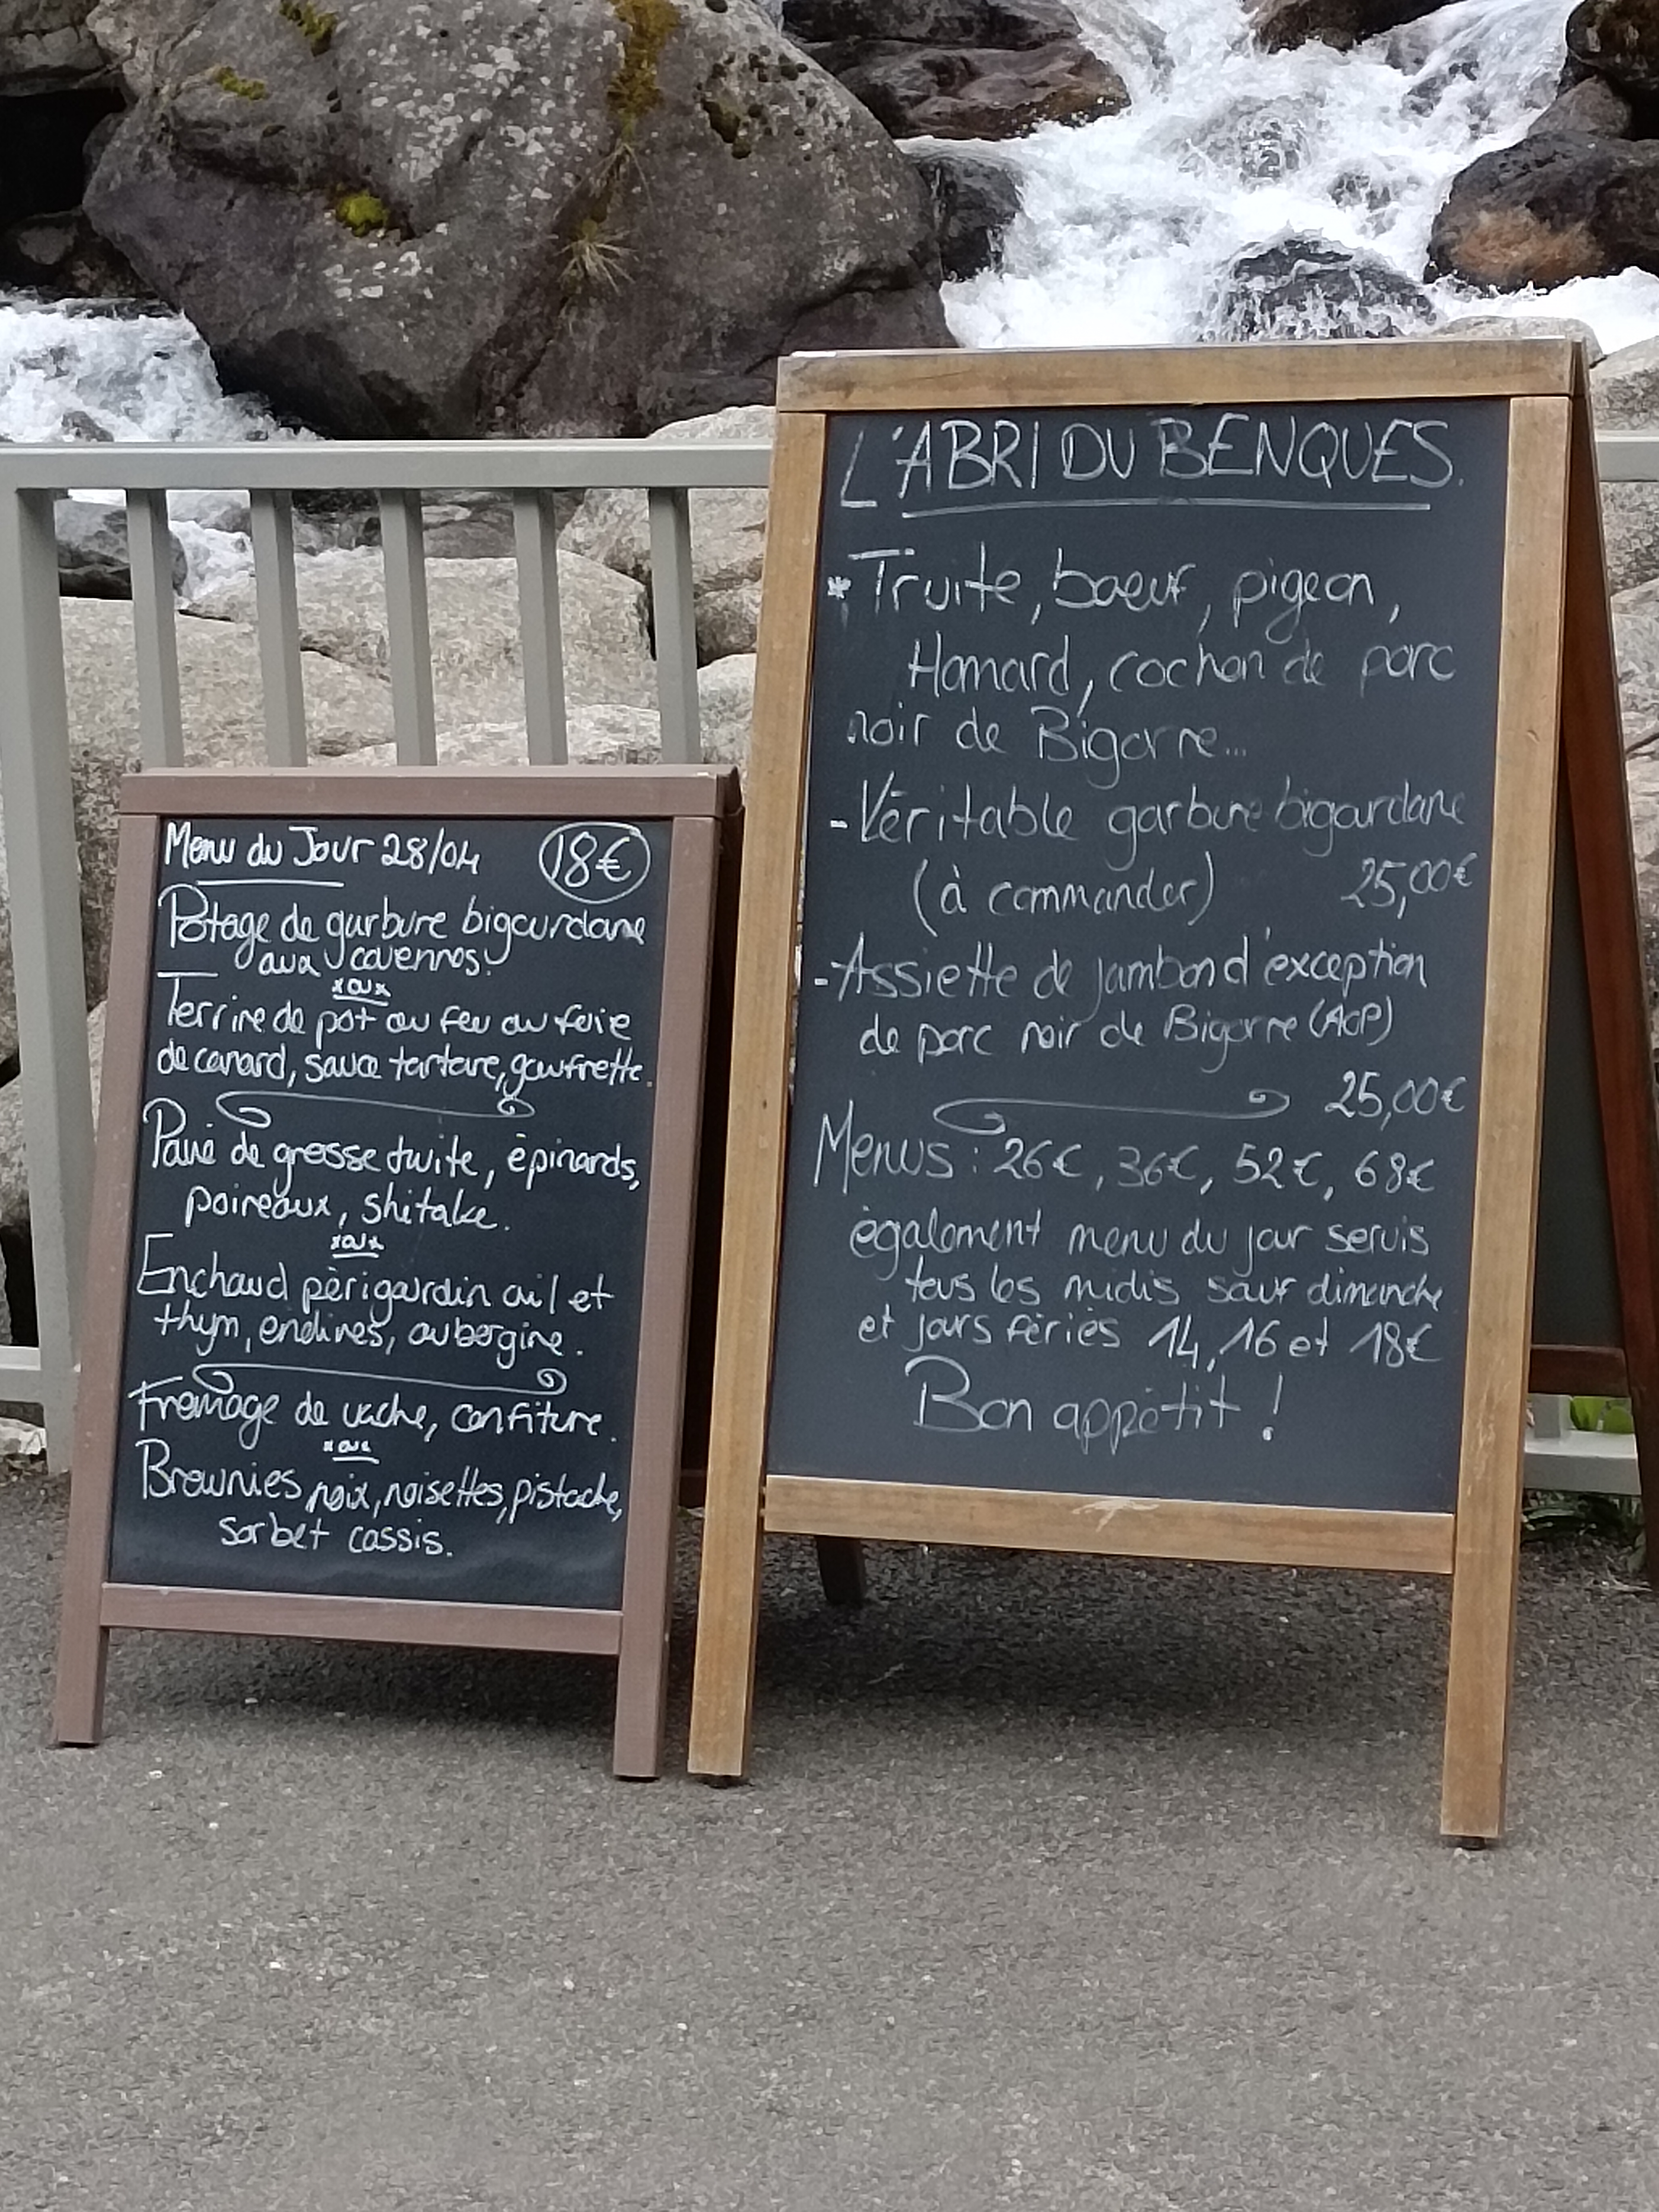 Menu du Jour 28/04 18€
Potage de garbure bigourdane
aux couennes.
*ou*
Terrine de pot au feu au foie
de canard, sauce tartare, gaufrette.
Pavé de grosse truite, épinards,
poireaux, shitake.
*ou*
Enchaud périgourdin ail et
thym, endives, aubergine.
Fromage de vache, confiture.
*ou*
Brownies noix, noisettes, pistache,
sorbet cassis.
L'ABRI DU BENQUES.
* Truite, boeuf, pigeon,
Homard, cochon de porc
noir de Bigorre...
- Véritable garbure bigourdane
(à commander) 25,00€
- Assiette de jambon d'exception
de porc noir de Bigorre (AOP)
25,00€
Menus : 26€, 36€, 52€, 68€
également menu du jour servis
tous les midis sauf dimanche
et jours fériés 14, 16 et 18€
Bon appétit !